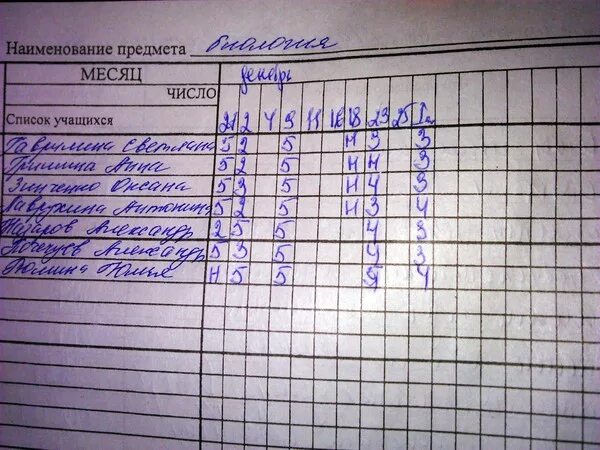 Наименование предмета биология
МЕСЯЦ декабрь
ЧИСЛО
Список учащихся 21 2 4 9 11 16 18 23 25 I
Гаврилина Светлана 5 2 5 н 3 3
Гришина Анна 5 2 5 н 4 3
Зинченко Оксана 5 3 5 н 4 3
Лаврухина Антонина 5 2 5 н 3 4
Александр 2 5 5 4 3
Почечуев Александр 5 3 5 4 3
Рюмина Юлья н 5 5 5 4